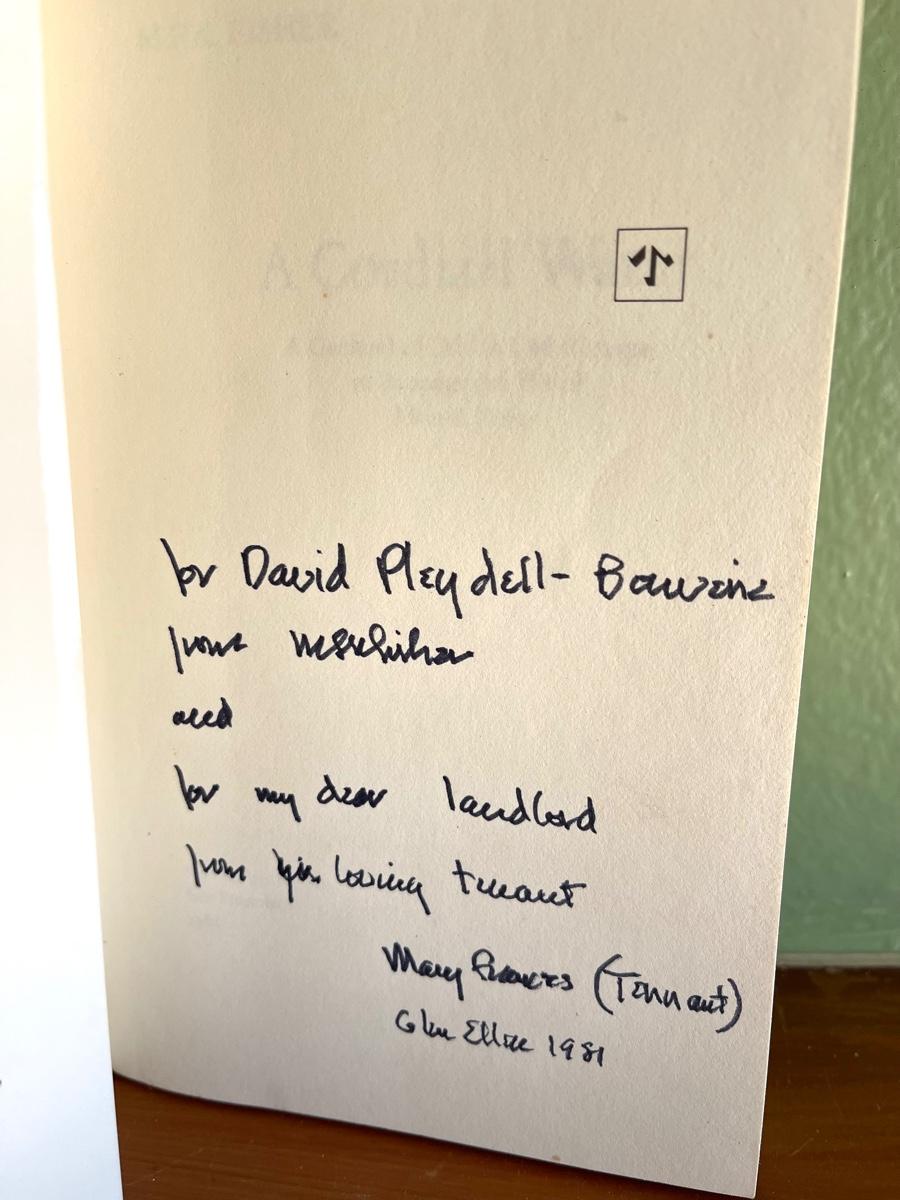 for David Pleydell-Bouverie
from MFKFisher
and
for my dear landlord
from his loving tenant
Mary Frances (Tennant)
Glen Ellen 1981
A Cordiall Water